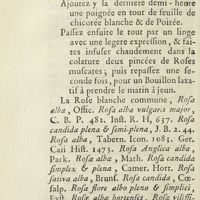 Ajoutez y la derniere demi-heure
une poignée en tout de feuille de
chicorée blanche & de Poirée.
Passez ensuite le tout par un linge
avec une legere expression, & fai-
tes infuser chaudement dans la
colature deux pincées de Roses
muscates; puis repassez une se-
conde fois, pour un Bouillon laxa-
tif à prendre le matin à jeun.
La Rose blanche commune, Rosa
alba, Offic. Rosa alba vulgaris major,
C. B. P. 482. Inst. R. H, 637. Rosa
candida plena & semi-plena, J. B. 2. 44.
Rosa alba, Tabern. Icon. 1085. Ger.
Caii Hist. 1473. Rosa Anglica alba,
Park. Rosa alba, Math. Rosa candida
simplex & plena, Camer. Hort. Rosa
sativa alba, Brunf. Rosa candida, Cœ-
salp. Rosa flore albo pleno & simplici,
Eyst. Rosæ albæ hortenses, Rosa